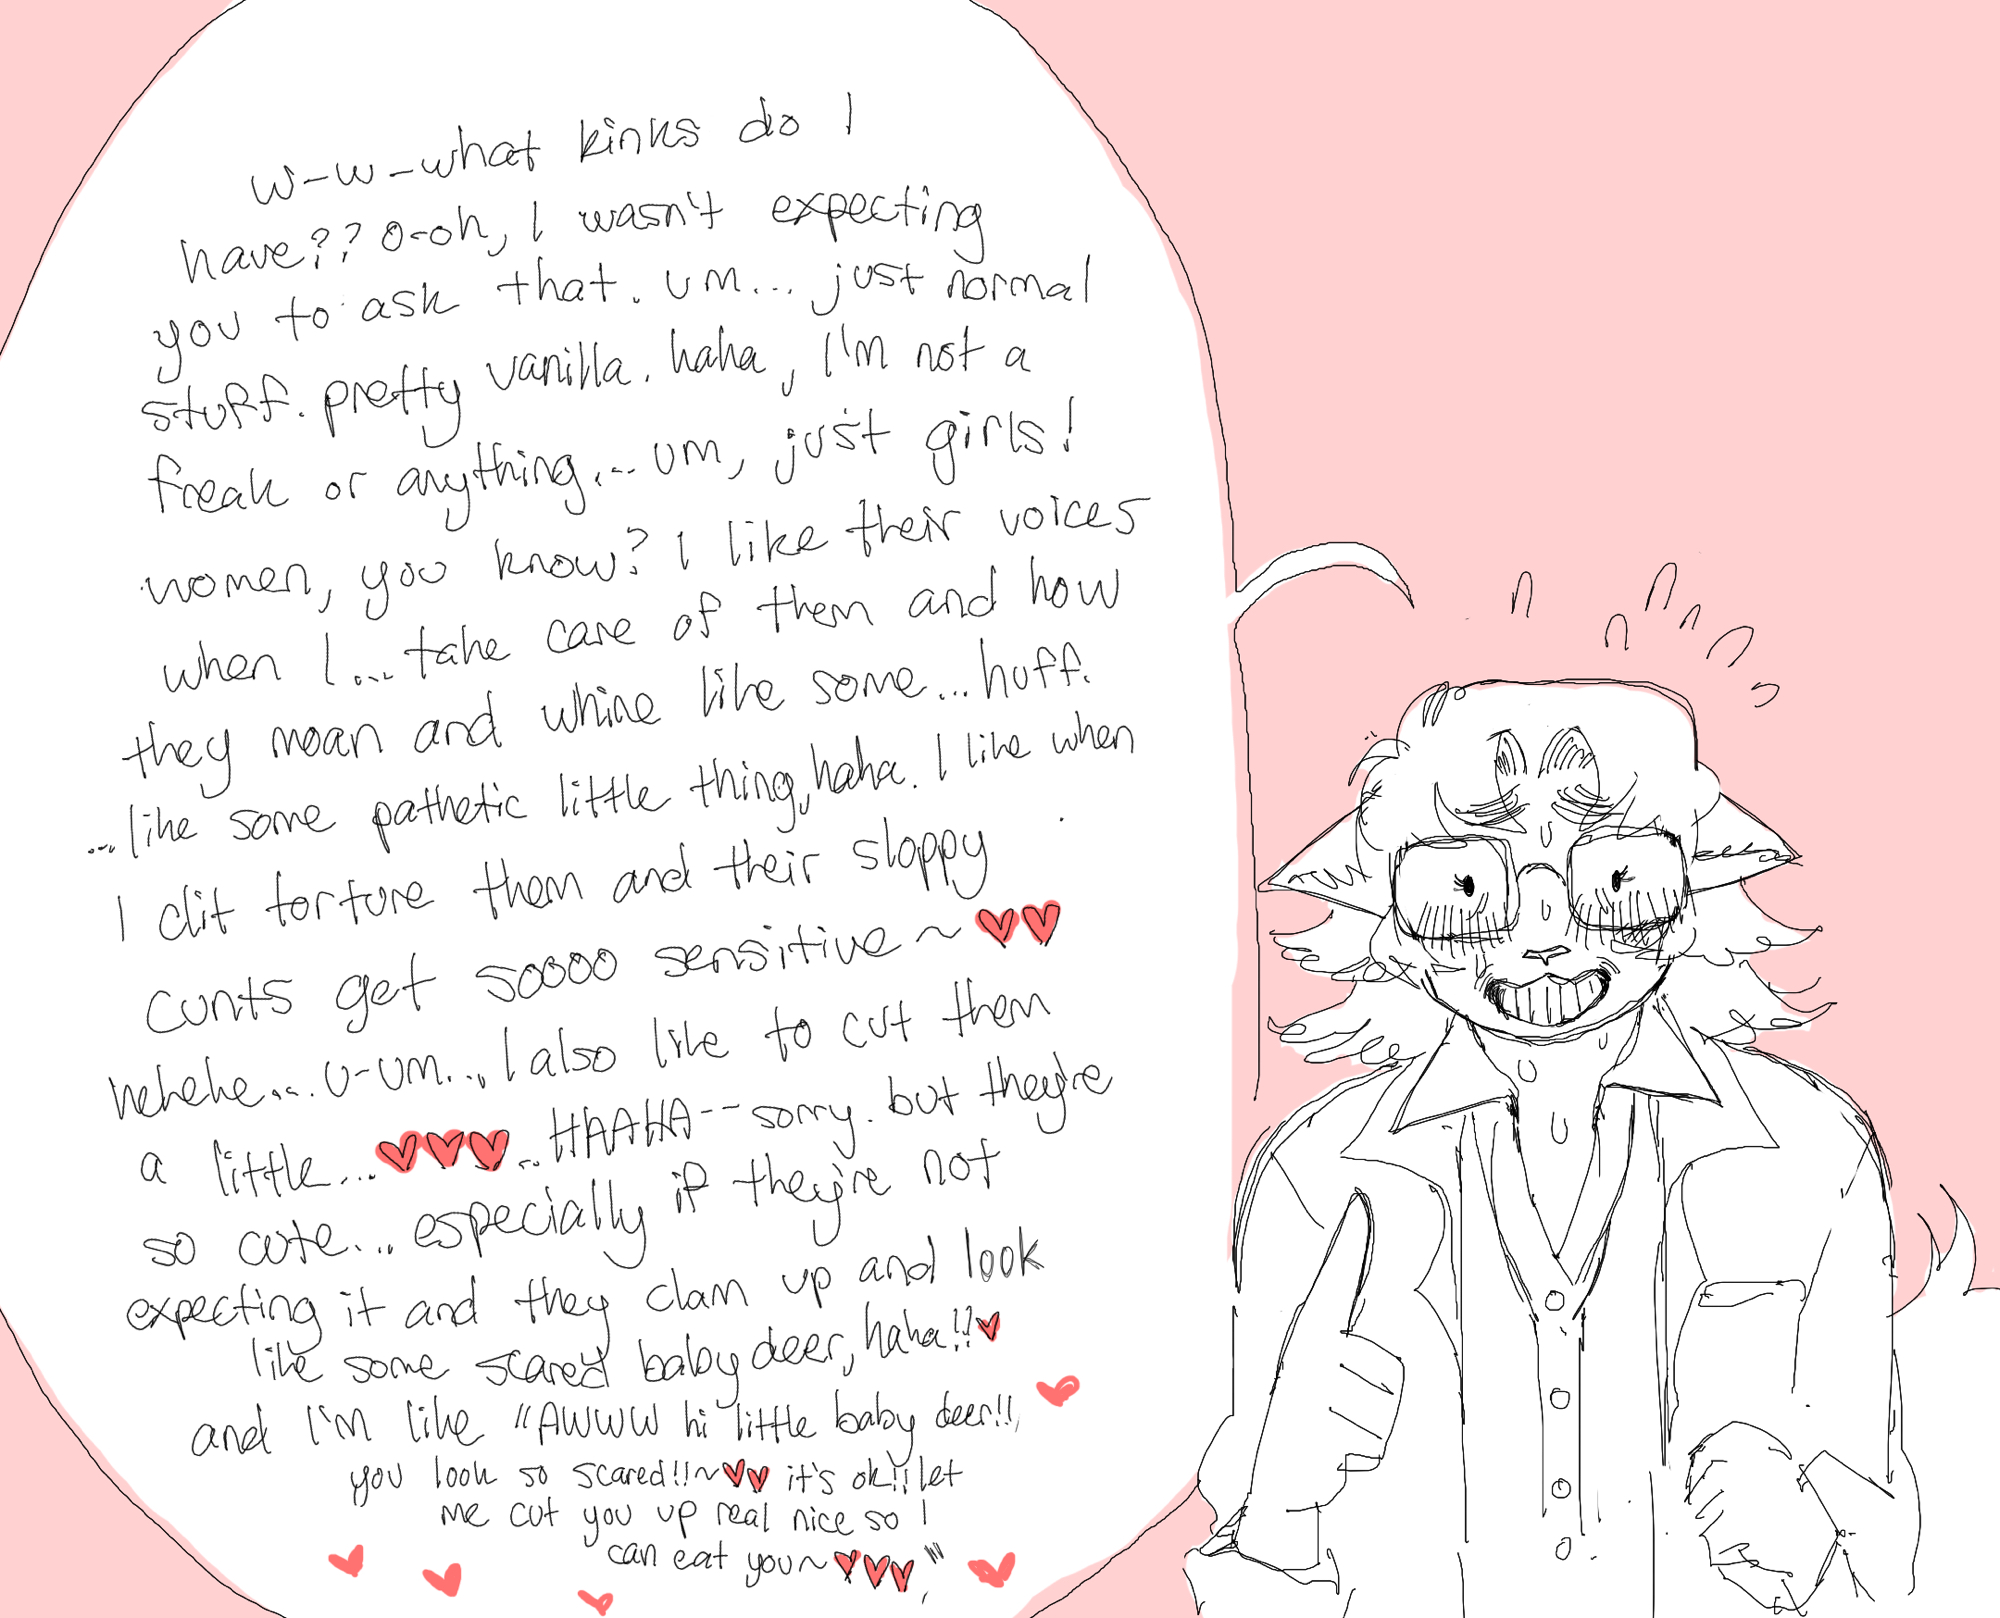 w-w-what kinks do I
have?? o-oh, I wasn't expecting
you to ask that. um... just normal
stuff. pretty vanilla. haha, I'm not a
freak or anything... um, just girls!
women, you know? I like their voices
when I... take care of them and how
they moan and whine like some... huff.
...like some pathetic little thing, haha. I like when
I clit torture them and their sloppy
cunts get soooo sensitive~ ♥♥
hehehe... u-um... I also like to cut them
a little... ♥♥♥... HAAHA-- sorry. but they're
so cute... especially if they're not
expecting it and they clam up and look
like some scared baby deer, haha!! ♥
and I'm like "AWWW hi little baby deer!!
you look so scared!!~♥♥ it's ok!! let
me cut you up real nice so I
can eat you~ ♥♥♥"